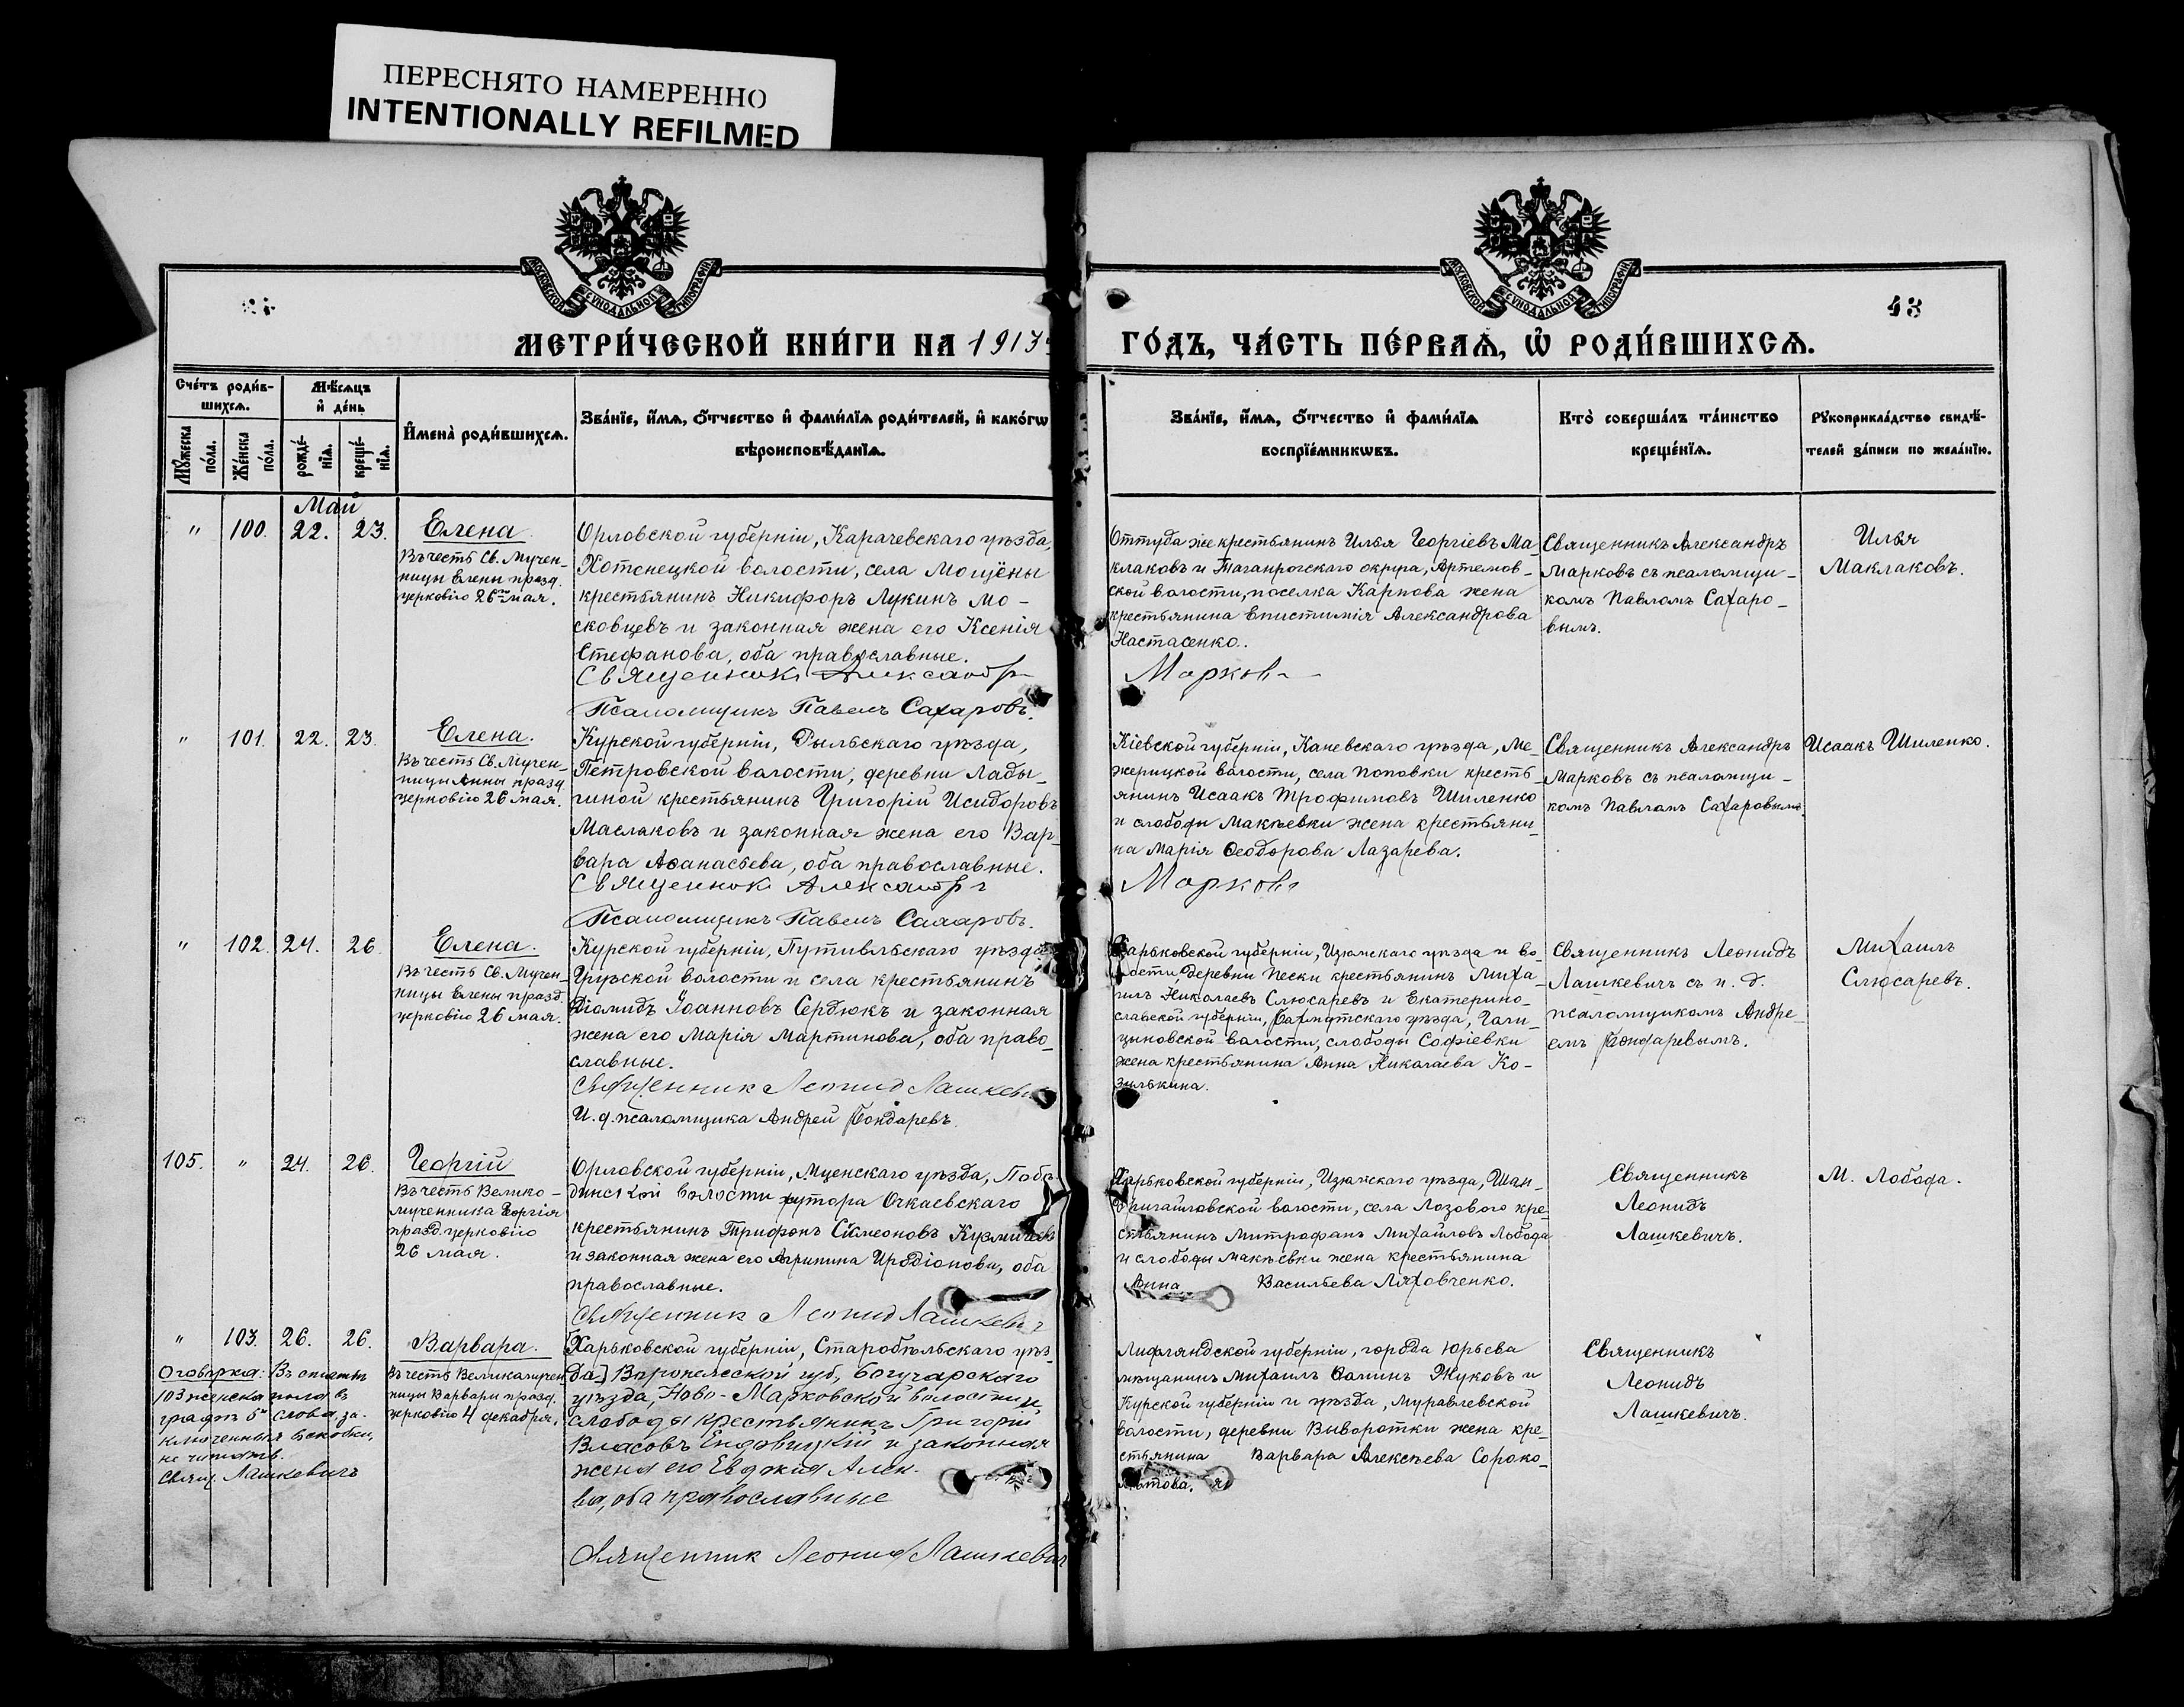 ПЕРЕСНЯТО НАМЕРЕННО
INTENTIONALLY REFILMED
МОСКОВСКОЙ СУНОДАЛЬНОЙ ТИПОГРАФІИ
МОСКОВСКОЙ СУНОДАЛЬНОЙ ТИПОГРАФІИ
43
МЕТРИ́ЧЕСКОЙ КНИ́ГИ НА 1913
ГО́ДЪ, ЧА́СТЬ ПЕ́РВАѦ, Ѡ РОДИ́ВШИХСѦ.
Сче́тъ роди́в-
шихсѧ.
Мꙋ́жеска по́ла.
Же́нска по́ла.
Мѣ́сѧцъ
и҆ де́нь
рожде́-нїѧ.
креще́-нїѧ.
И҆мена̀ роди́вшихсѧ.
Зва́нїе, и҆́мѧ, ѻ҆́тчество и҆ фами́лїѧ роди́телей, и҆ како́гѡ
вѣроисповѣ́данїѧ.
Зва́нїе, и҆́мѧ, ѻ҆́тчество и҆ фами́лїѧ
воспрїе́мникѡвъ.
Кто̀ соверша́лъ та́инство
креще́нїѧ.
Рꙋкоприкла́дство свидѣ́-
телей за́писи по жела́нїю.
Май
" 100. 22. 23.
Елена
Въ честь Св. Мучен-
ницы Елены празд.
церковію 26го мая.
Орловской губерніи, Карачевскаго уѣзда,
Хотенецкой волости, села Мощёны
крестьянинъ Никифоръ Лукинъ Мо-
сковцевъ и законная жена его Ксенія
Стефанова, оба православные.
Священникъ Александръ
Псаломщикъ Павелъ Сахаровъ.
Оттуда же крестьянинъ Илья Георгіевъ Ма-
клаковъ и Таганрогскаго округа, Артемов-
ской волости, поселка Карпова жена
крестьянина Епистимія Александрова
Настасенко.
Марковъ
Священникъ Александръ
Марковъ съ псаломщи-
комъ Павломъ Сахаро-
вымъ.
Илья
Маклаковъ.
" 101. 22. 23.
Елена.
Въ честь Св. Мучен-
ницы Елены празд.
церковію 26 мая.
Курской губерніи, Рыльскаго уѣзда,
Петровской волости, деревни Лады-
гиной крестьянинъ Григорій Исидоровъ
Маслаковъ и законная жена его Вар-
вара Аѳанасьева, оба православные.
Священникъ Александръ
Псаломщикъ Павелъ Сахаровъ.
Кіевской губерніи, Каневскаго уѣзда, Ме-
жерицкой волости, села Поповки кресть-
янинъ Исаакъ Трофимовъ Шиленко
и слободы Макѣевки жена крестьяни-
на Марія Ѳеодорова Лазарева.
Марковъ
Священникъ Александръ
Марковъ съ псаломщи-
комъ Павломъ Сахаровымъ.
Исаакъ Шиленко.
" 102. 24. 26.
Елена.
Въ честь Св. Мучен-
ницы Елены празд.
церковію 26 мая.
Курской губерніи, Путивльскаго уѣзда
Грузской волости и села крестьянинъ
Діомидъ Іоанновъ Сердюкъ и законная
жена его Марія Мартинова, оба право-
славные.
Священник Леонид Лашкевич
И. д. псаломщика Андрей Бондаревъ.
Харьковской губерніи, Изюмскаго уѣзда и во-
лости, деревни Пески крестьянинъ Миха-
илъ Николаевъ Слюсаревъ и Екатерино-
славской губерніи, Бахмутскаго уѣзда, Гали-
цыновской волости, слободы Софіевки
жена крестьянина Анна Николаева Ко-
зулькина.
Священникъ Леонидъ
Лашкевичъ съ и. д.
псаломщикомъ Андре-
емъ Бондаревымъ.
Михаилъ
Слюсаревъ.
105. " 24. 26.
Георгій
Въ честь Велико-
мученника Георгія
празд. церковію
26 мая.
Орловской губерніи, Мценскаго уѣзда,
волости хутора Очкаевскаго
крестьянинъ Трифонъ Симеоновъ Кузмичевъ
и законная жена его Агрипина Иродіонова, оба
православные.
Священник Леонид Лашкевич
Харьковской губерніи, Изюмскаго уѣзда,
волости, села Лозового кре-
стьянинъ Митрофанъ Михайловъ Лобода
и слободы Макѣевки жена крестьянина
Анна Васильева Ляховченко.
Священникъ
Леонидъ
Лашкевичъ.
М. Лобода.
" 103. 26. 26.
Варвара.
Въ честь Великомучен-
ницы Варвары празд.
церковію 4 декабря.
Оговорка: Въ статьѣ
103 женска пола въ
графѣ 5й слова, за-
ключенныя въ скобки,
не читать.
Свящ. Лашкевичъ
[Харьковской губерніи, Старобѣльскаго уѣз-
да] Воронежской губ., Богучарскаго
уѣзда, Ново-Марковской волости и
слободы крестьянинъ Григорій
Власовъ Ендовицкій и законная
жена его Евдокія Алек-
ва, оба православные
Священник Леонид Лашкевич
Лифляндской губерніи, города Юрьева
мѣщанинъ Михаилъ Жуковъ и
Курской губерніи и уѣзда, Муравлевской
волости, деревни Выворотки жена кре-
стьянина Варвара Алексѣева Сороко-
лѣтова.
Священникъ
Леонидъ
Лашкевичъ.